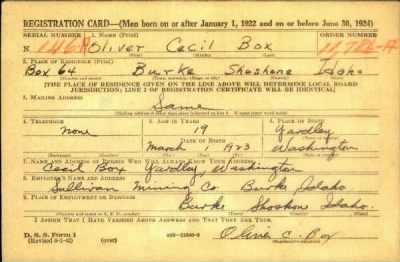 REGISTRATION CARD—(Men born on or after January 1, 1922 and on or before June 30, 1924)
SERIAL NUMBER 1. NAME (Print) ORDER NUMBER
Oliver Cecil Box
2. PLACE OF RESIDENCE (Print)
Box 64 Burke Shoshone Idaho
[THE PLACE OF RESIDENCE GIVEN ON THE LINE ABOVE WILL DETERMINE LOCAL BOARD
JURISDICTION; LINE 2 OF REGISTRATION CERTIFICATE WILL BE IDENTICAL]
3. MAILING ADDRESS
Same
4. TELEPHONE 5. AGE IN YEARS 6. PLACE OF BIRTH
none 19 Yardley
DATE OF BIRTH
March 1 1923 Washington
7. NAME AND ADDRESS OF PERSON WHO WILL ALWAYS KNOW YOUR ADDRESS
Cecil Box Yardley, Washington
8. EMPLOYER'S NAME AND ADDRESS
Sullivan Mining Co. Burke Idaho
9. PLACE OF EMPLOYMENT OR BUSINESS
Burke Shoshon Idaho.
I AFFIRM THAT I HAVE VERIFIED ABOVE ANSWERS AND THAT THEY ARE TRUE.
D. S. S. Form 1
(Revised 6-1-42) (over) Oliver C. Box